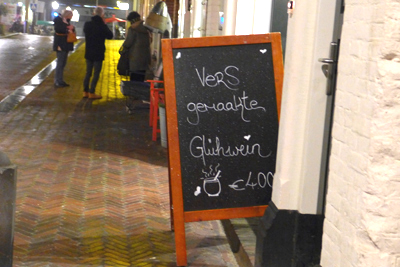 Vers
gemaakte
Glühwein
€400